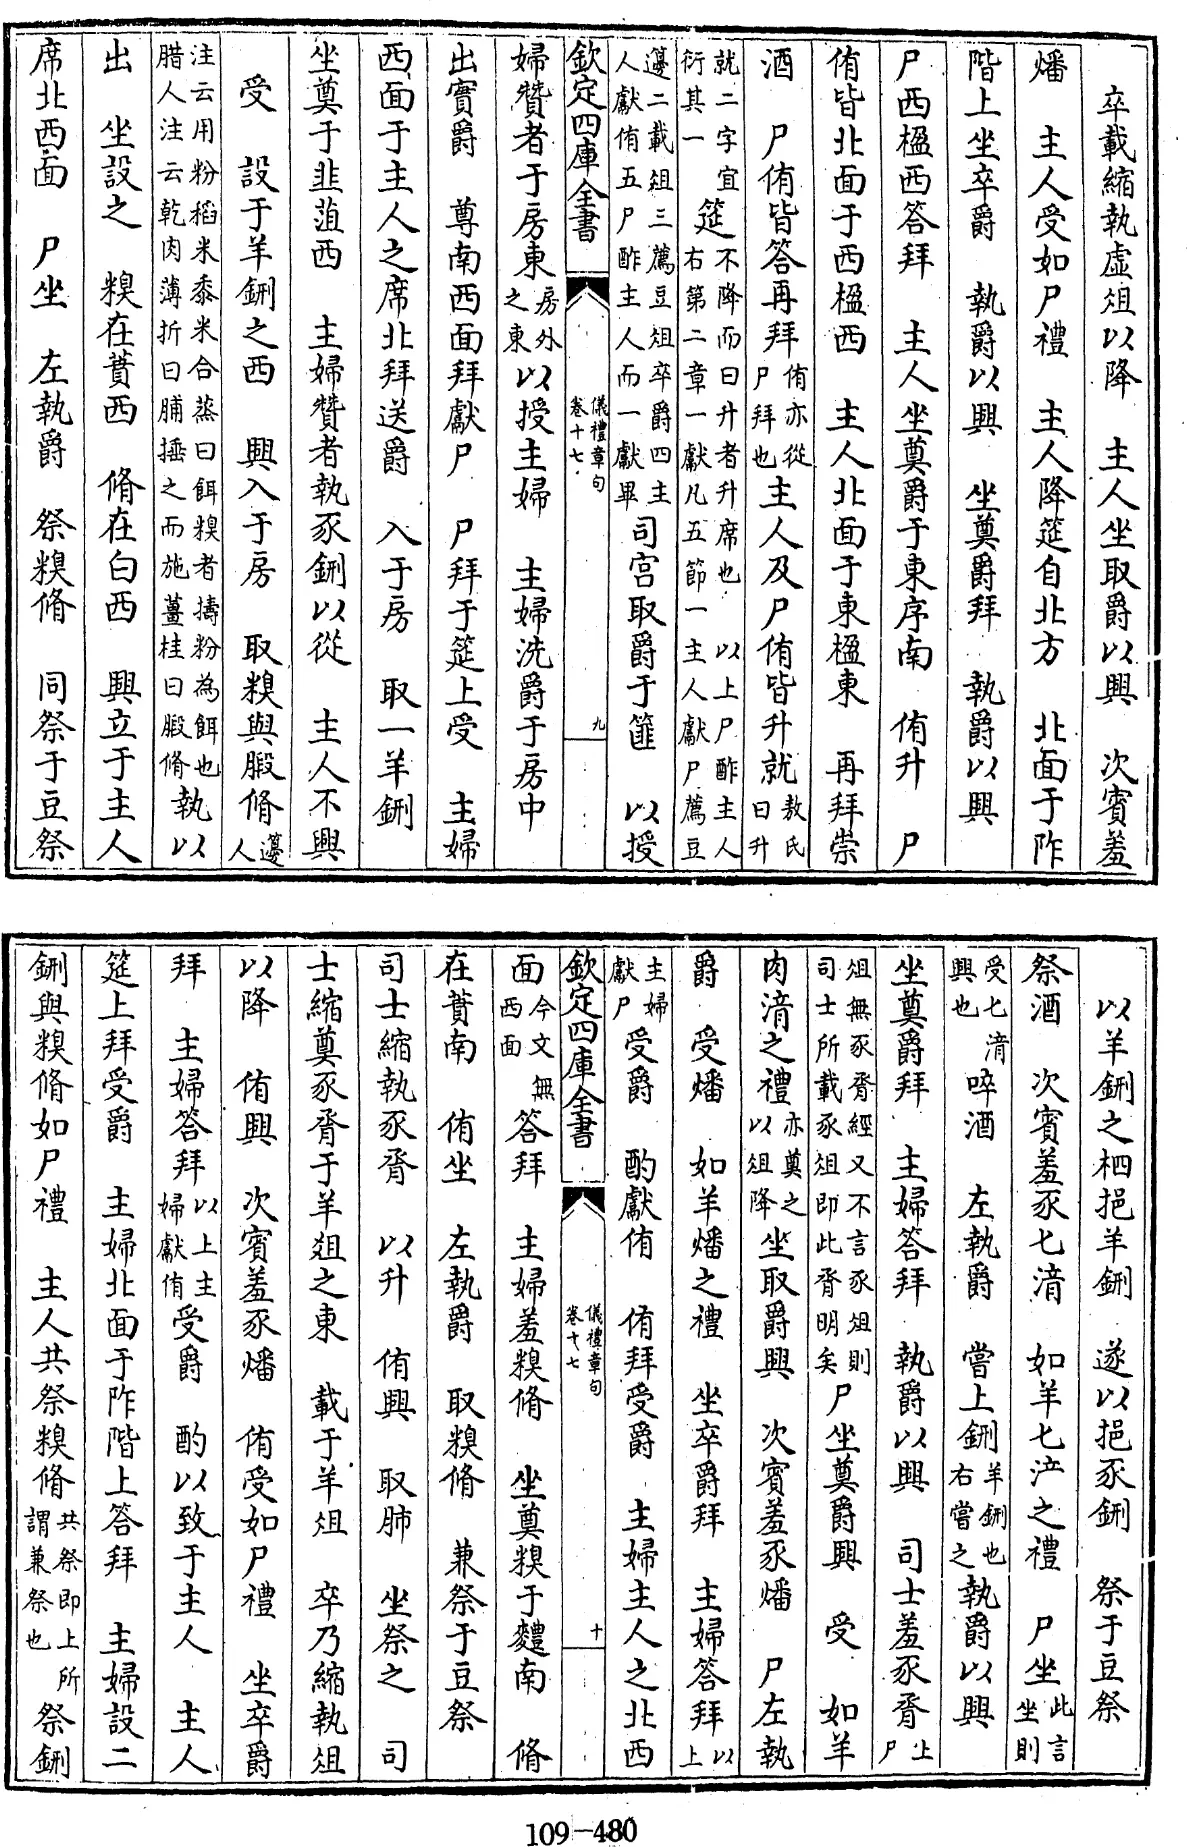 卒載縮執虛俎以降　主人坐取爵以興　次賓羞
燔　主人受如尸禮　主人降筵自北方　北面于阼
階上坐卒爵　執爵以興　坐奠爵拜　執爵以興
尸西楹西答拜　主人坐奠爵于東序南　侑升　尸
侑皆北面于西楹西　主人北面于東楹東　再拜崇
酒　尸侑皆答再拜侑亦從尸拜也主人及尸侑皆升就敖氏曰升
就二字宜衍其一筵不降而曰升者升席也　以上尸酢主人右第二章一獻凡五節一主人獻尸薦豆
籩二載俎三薦豆俎卒爵四主人獻侑五尸酢主人而一獻畢司宮取爵于篚　以授
欽定四庫全書　儀禮章句卷十七　九
婦贊者于房東房外之東以授主婦　主婦洗爵于房中
出實爵　尊南西面拜獻尸　尸拜于筵上受　主婦
西面于主人之席北拜送爵　入于房　取一羊鉶
坐奠于韭菹西　主婦贊者執豕鉶以從　主人不興
受　設于羊鉶之西　興入于房　取糗與腶脩籩人
注云用粉稻米黍米合蒸曰餌糗者擣粉為餌也腊人注云乾肉薄折曰脯捶之而施薑桂曰腶脩執以
出　坐設之　糗在蕡西　脩在白西　興立于主人
席北西面　尸坐　左執爵　祭糗脩　同祭于豆祭
以羊鉶之柶挹羊鉶　遂以挹豕鉶　祭于豆祭
祭酒　次賓羞豕匕湆　如羊匕湆之禮　尸坐此言坐則
受匕湆興也啐酒　左執爵　嘗上鉶羊鉶也右嘗之執爵以興
坐奠爵拜　主婦答拜　執爵以興　司士羞豕脀上尸
俎無豕脀經又不言豕俎則司士所載豕俎即此脀明矣尸坐奠爵興　受　如羊
肉湆之禮亦奠之以俎降坐取爵興　次賓羞豕燔　尸左執
爵　受燔　如羊燔之禮　坐卒爵拜　主婦答拜以上
主婦獻尸受爵　酌獻侑　侑拜受爵　主婦主人之北西
欽定四庫全書　儀禮章句卷十七　十
面今文無西面答拜　主婦羞糗脩　坐奠糗于麷南　脩
在蕡南　侑坐　左執爵　取糗脩　兼祭于豆祭
司士縮執豕脀　以升　侑興　取肺　坐祭之　司
士縮奠豕脀于羊俎之東　載于羊俎　卒乃縮執俎
以降　侑興　次賓羞豕燔　侑受如尸禮　坐卒爵
拜　主婦答拜以上主婦獻侑受爵　酌以致于主人　主人
筵上拜受爵　主婦北面于阼階上答拜　主婦設二
鉶與糗脩如尸禮　主人共祭糗脩共祭即上所謂兼祭也祭鉶
109-480